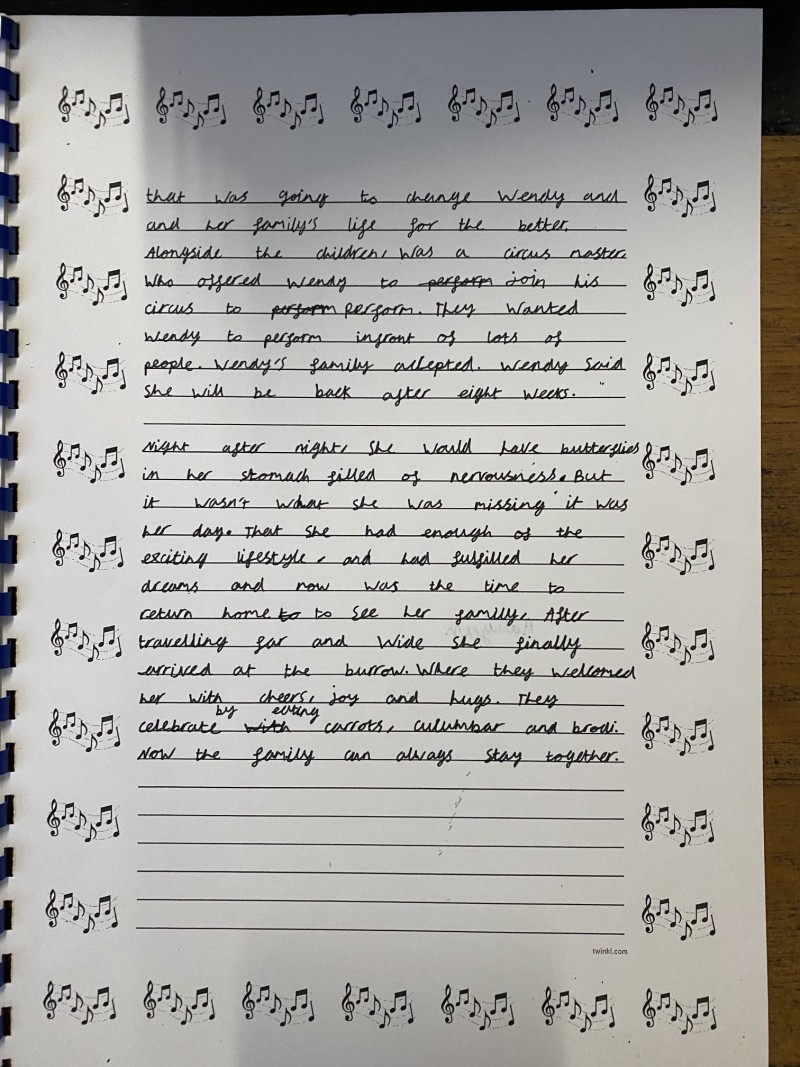 that was going to change Wendy and
and her family's life for the better.
Alongside the children, was a circus master.
Who offered Wendy to perform join his
circus to perform perform. They wanted
Wendy to perform infront of lots of
people. Wendy's family accepted. Wendy said
she will be back after eight weeks.
Night after night, she would have butterflies
in her stomach filled of nervousness. But
it wasn't what she was missing it was
her day. That she had enough of the
exciting lifestyle, and had fulfilled her
dreams and now was the time to
return home to to see her familly. After
travelling far and wide she finally
arrived at the burrow. Where they welcomed
her with cheers, joy and hugs. They
by eating
celebrate with carrots, culumbar and brodi.
Now the family can always stay together.
twinkl.com